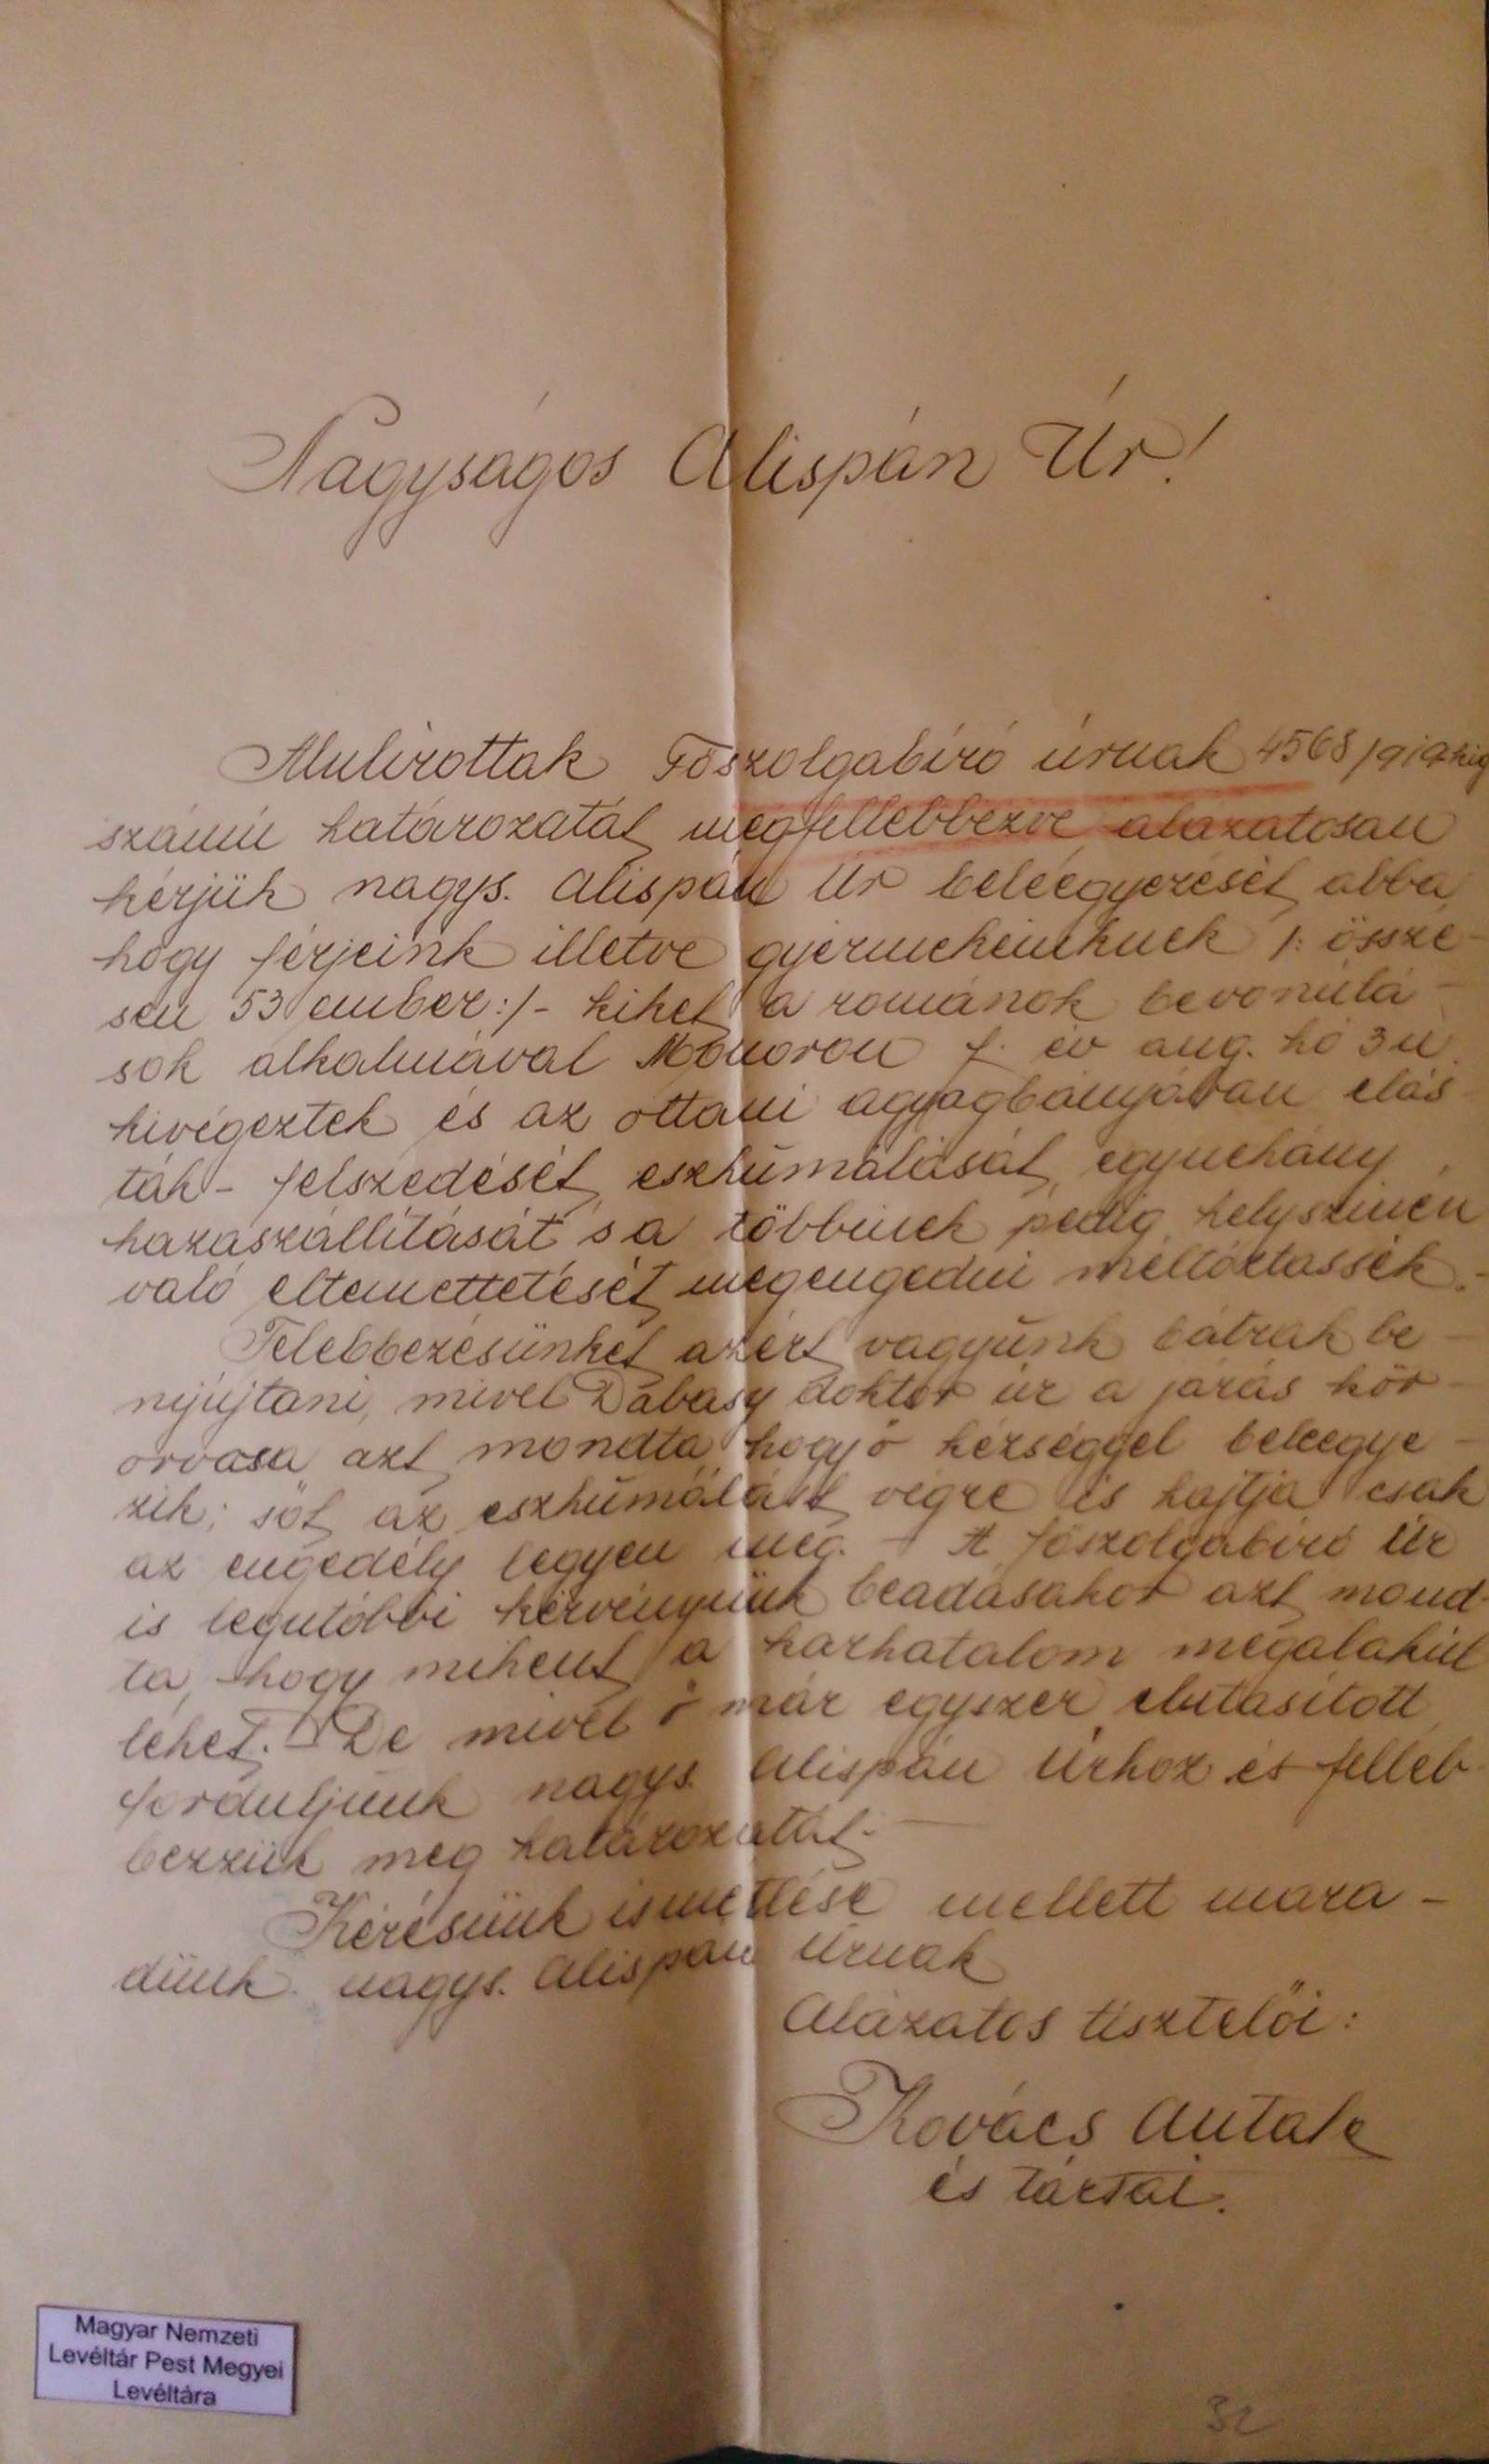 Nagyságos Alispán Úr!
Alulirottak Főszolgabíró úrnak 4568/919 kig
számú határozatát megfellebbezve alázatosan
kérjük nagys. Alispán Úr beleégyezését abba,
hogy férjeink illetve gyermekeinknek /: össze-
sen 53 ember :/ - kiket a románok bevonulá-
sok alkalmával Monoron f. év aug. hó 3 n
kivégeztek és az ottani agyagbányában elás-
ták - felszedését, eszhumálását, egynehány
hazaszállítását s a többinek pedig helyszinén
való eltemettetését megengedni méltóztassék.-
Felebbezésünket azért vagyunk bátrak be-
nyújtani, mivel Dabasy doktor úr a járás kör-
orvosa azt mondta, hogy ő készséggel beleegye-
zik; sőt az eszhumálást végre is hajtja csak
az engedély legyen meg. - A főszolgabíró Úr
is legutóbbi kérvényünk beadásakor azt mond-
ta, hogy mihent a házhatalom megalakúl
lehet. - De mivel ő már egyszer elutasított
forduljunk nagys. Alispán Úrhoz és felleb-
bezzük meg határozatát. -
Kérésünk ismétlése mellett mara-
dunk nagys. Alispán Úrnak
Alázatos tisztelői:
Kovács Antalé
és társai.
Magyar Nemzeti
Levéltár Pest Megyei
Levéltára
32